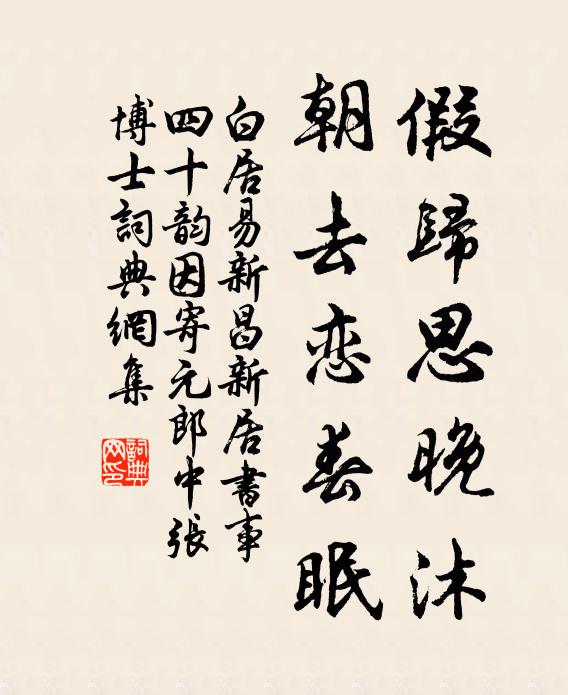 假歸思晚沐
朝去恋春眠
白居易新昌新居書事
四十韵因寄元郎中張
博士詞典網集
詞典网印